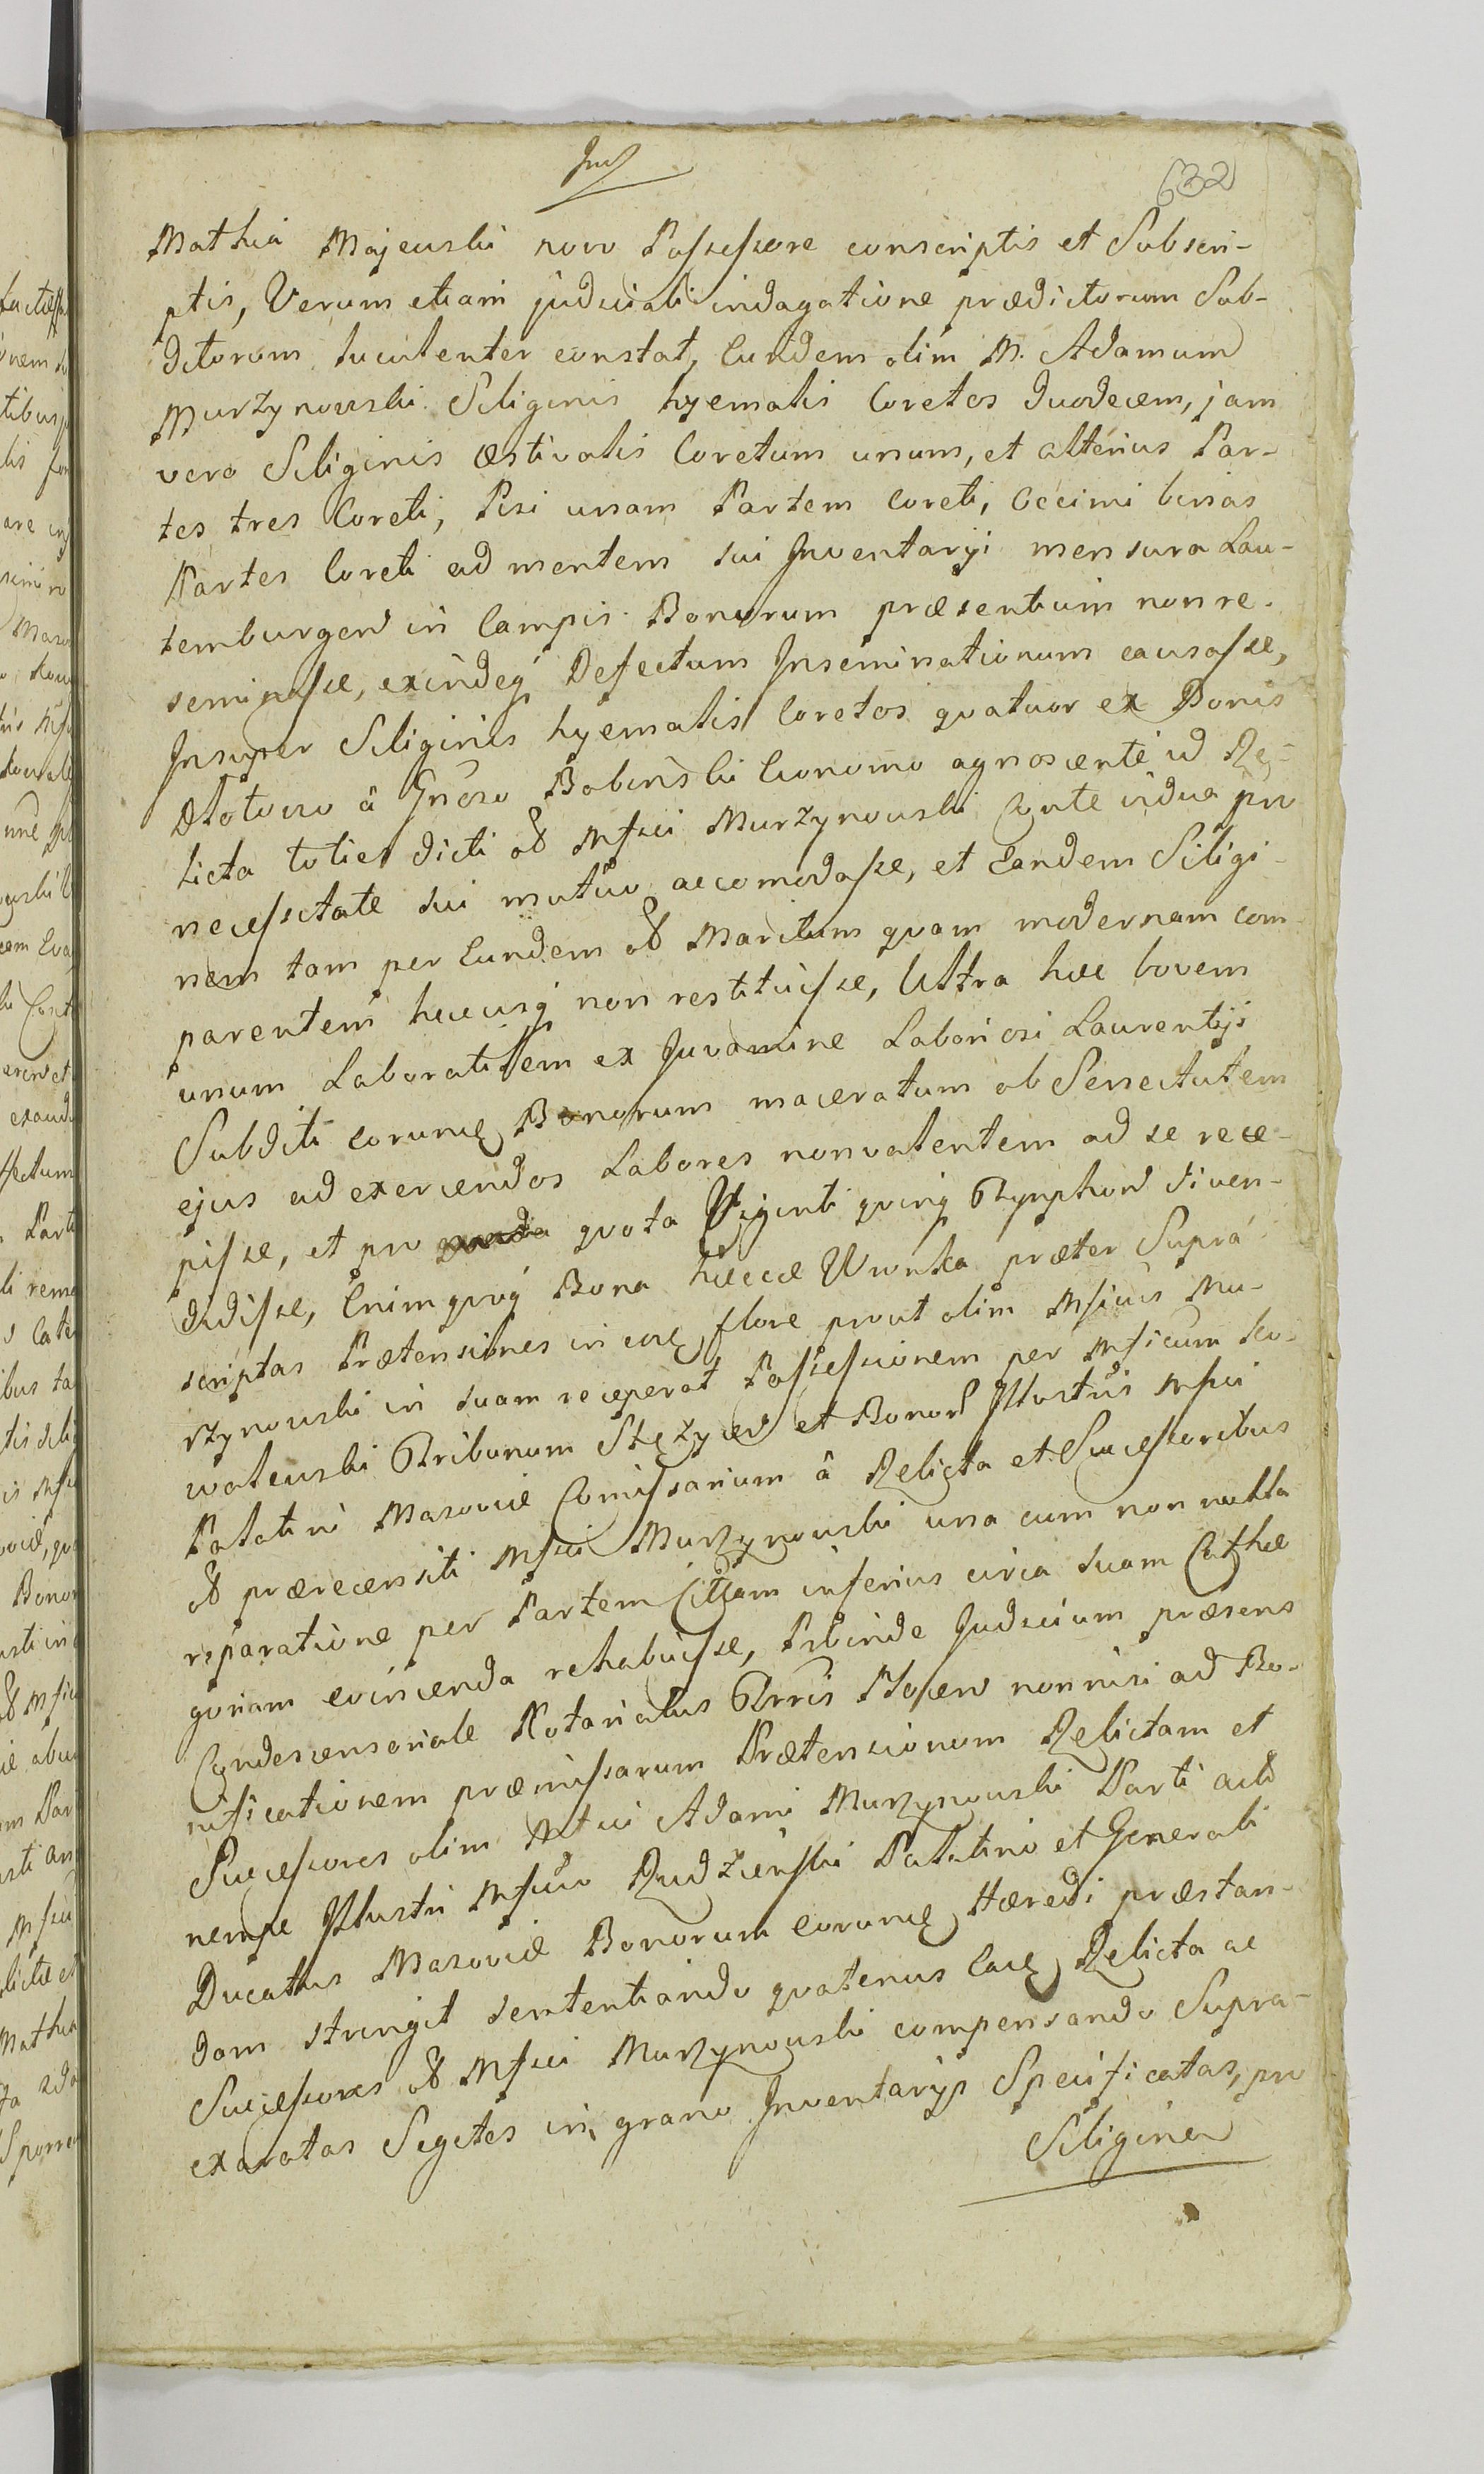 632
Mathia Majewski novo Possessore conscriptis et Subscri-
ptis, Verum etiam judiciali indagatione prædictorum Sub-
ditorum luculenter constat, Eundem olim M. Adamum
Murzynowski Siliginis hyemalis Coretos duodecem, jam
vero Siliginis æstivalis Coretum unum, et alterius Par-
tes tres Coreti, Pisi unam Partem Coreti, Cecimi binas
Partes Coreti ad mentem sui Inventarÿi mensura Lau-
temburgen in Campis Bonorum præsentium non re-
seminasse, exindeq Defectum Inseminationum causasse,
Insuper Siliginis hyemalis Coretos quatuor ex Bonis
Płotowo â Gnoso Babinski Œconomo agnoscente id Re-
licta toties dicti oł Mfici Murzynowski Conte vidua pro
necessitate sui mutuo accomodasse, et Eandem Siligi-
nem tam per Eundem oł Maritum quam modernam com
parentem hucusq non restituisse, Ultra hæc bovem
unum Laboratilem ex Juvamine Laboriosi Laurentÿi
Subditi eorunde Bonorum maceratum ob Senectutem
ejus ad exercendos Labores non valentem ad se rece-
pisse, et pro quota Viginti quinq Tynphon diven-
didisse, Enimq Bona hæcce Wronka præter Supra
scriptas Prætensiones in eoe flore prout olim Mficus Mu-
rzynowski in suam receperat Possessionem per Mficum Ko-
walewski Tribunum Stężycen et Bonor Illustris Mfici
Palatini Masoviæ Comissarium â Relicta et Successoribus
oł prærecensiti Mfici Murzynowski una cum non nulla
reparatione per Partem Cittam inferius circa suam Cathe
goriam evincenda rehabuisse, Proinde Judicium præsens
Condescensoriale Notariatus Trris Płocen non nisi ad Bo-
nificationem præmissarum Prætensionum Relictam et
Successores olim Mfici Adami Murzynowski Parti actæ
nempe Illustri Mfico Rudzienski Palatino et Generali
Ducatus Masoviæ Bonorum eorunde Hæredi præstan-
dam stringit sententiando quatenus Eade Relicta ac
Successores oł Mfici Murzynowski compensando Supra-
exaratas Segetes in grano Inventarÿs Specificatas, pro
Siligine